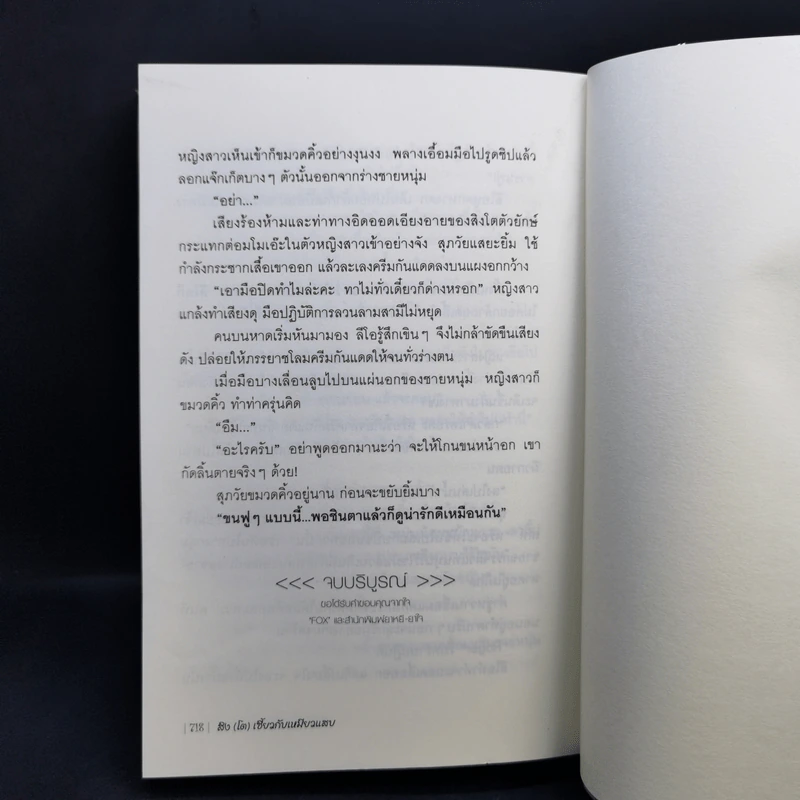 หญิงสาวเห็นเข้าก็ขมวดคิ้วอย่างงุนงง พลางเอื้อมมือไปรูดซิปแล้ว
ลอกแจ๊กเก็ตบางๆ ตัวนั้นออกจากร่างชายหนุ่ม
“อย่า...”
เสียงร้องห้ามและท่าทางอิดออดเอียงอายของสิงโตตัวยักษ์
กระแทกต่อมโมเอ๊ะในตัวหญิงสาวเข้าอย่างจัง สุภวัยแสยะยิ้ม ใช้
กำลังกระชากเสื้อเขาออก แล้วละเลงครีมกันแดดลงบนแผงอกกว้าง
“เอามือปิดทำไมล่ะคะ ทาไม่ทั่วเดี๋ยวก็ด่างหรอก” หญิงสาว
แกล้งทำเสียงดุ มือปฏิบัติการลวนลามสามีไม่หยุด
คนบนหาดเริ่มหันมามอง ลีโอรู้สึกเขินๆ จึงไม่กล้าขัดขืนเสียง
ดัง ปล่อยให้ภรรยาชโลมครีมกันแดดให้จนทั่วร่างตน
เมื่อมือบางเลื่อนลูบไปบนแผ่นอกของชายหนุ่ม หญิงสาวก็
ขมวดคิ้ว ทำท่าครุ่นคิด
“อืม...”
“อะไรครับ” อย่าพูดออกมานะว่า จะให้โกนขนหน้าอก เขา
กัดลิ้นตายจริงๆ ด้วย!
สุภวัยขมวดคิ้วอยู่นาน ก่อนจะขยับยิ้มบาง
“ขนฟูๆ แบบนี้...พอชินตาแล้วก็ดูน่ารักดีเหมือนกัน”
<<< จบบริบูรณ์ >>>
ขอได้รับคำขอบคุณจากใจ
"FOX" และสำนักพิมพ์ยาหยี-ยาใจ
| 718 | สิง (โต) เขี้ยวกับเหมียวแสบ